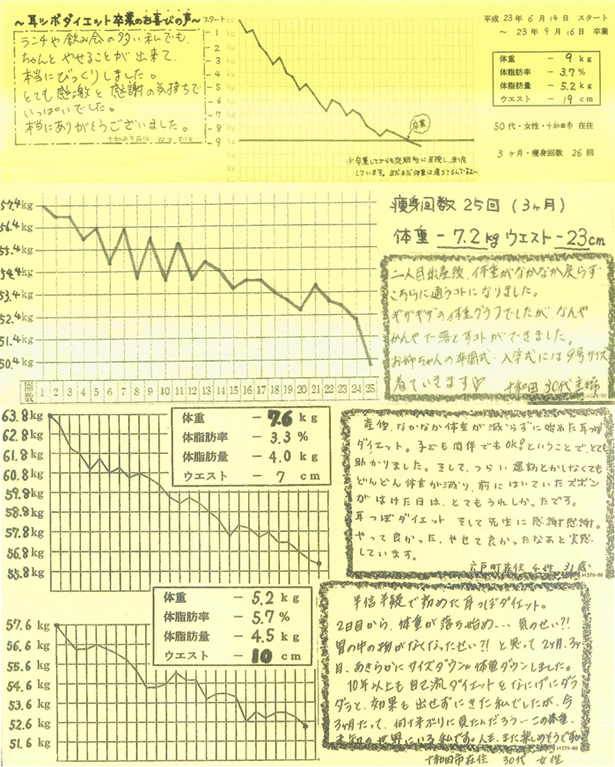 ～耳ツボダイエット卒業のお喜びの声～
ランチや飲み会の多い私でも、
ちゃんとやせることが出来て、
本当にびっくりしました。
とても感激と感謝の気持ちで
いっぱいでした。
本当にありがとうございました。
スタート
- 1
- 2
- 3
- 4
- 5
- 6
- 7
- 8
- 9
kg
スタート
卒業
平成 23年 6月 14日 スタート
～ 23年 9月 16日 卒業
体重 － 9 kg
体脂肪率 － 3.7%
体脂肪量 － 5.2 kg
ウエスト － 19 cm
50代・女性・十和田市 在住
3ヶ月・痩身回数 26回
57.4kg
56.4kg
55.4kg
54.4kg
53.4kg
52.4kg
51.4kg
50.4kg
回数 1 2 3 4 5 6 7 8 9 10 11 12 13 14 15 16 17 18 19 20 21 22 23 24 25
痩身回数 25回 (3ヶ月)
体重 －7.2kg ウエスト －23cm
二人目出産後、体重がなかなか戻らず
こちらに通うコトになりました。
ギザギザの体重グラフでしたが、なんや
かんやで落とすコトができました。
お姉ちゃんの卒園式・入学式には9号サイズ
着ていきます♡
十和田 30代 主婦
63.8kg
62.8kg
61.8kg
60.8kg
59.8kg
58.8kg
57.8kg
56.8kg
55.8kg
体重 － 7.6 kg
体脂肪率 － 3.3 %
体脂肪量 － 4.0 kg
ウエスト － 7 cm
産後、なかなか体重が減らずに始めた耳つぼ
ダイエット。子ども同伴でもOK!ということで、とても
助かりました。そして、つらい運動とかしなくても
どんどん体重が減り、前にはいていたズボン
がはけた日は、とてもうれしかったです。
耳つぼダイエット そして先生に感謝感謝。
やって良かった、やせて良かったなあと実感
しています。
六戸町在住 女性 31歳
57.6 kg
56.6 kg
55.6 kg
54.6 kg
53.6 kg
52.6 kg
51.6 kg
体重 － 5.2 kg
体脂肪率 － 5.7 %
体脂肪量 － 4.5 kg
ウエスト － 10 cm
半信半疑で初めた耳つぼダイエット。
2日目から、体重が落ち始め… 気のせい?!
胃の中の物がなくなったせい?! と思って2ヶ月、3ヶ
月、あきらかにサイズダウン体重ダウンしました。
10年以上も自己流ダイエットをなにげにダラ
ダラと、効果も出せずにきた私でしたが、今
3ヶ月たって、何年ぶりに見たんだろう…この体重、
未知の世界にいる私です。
十和田市在住 30代 女性